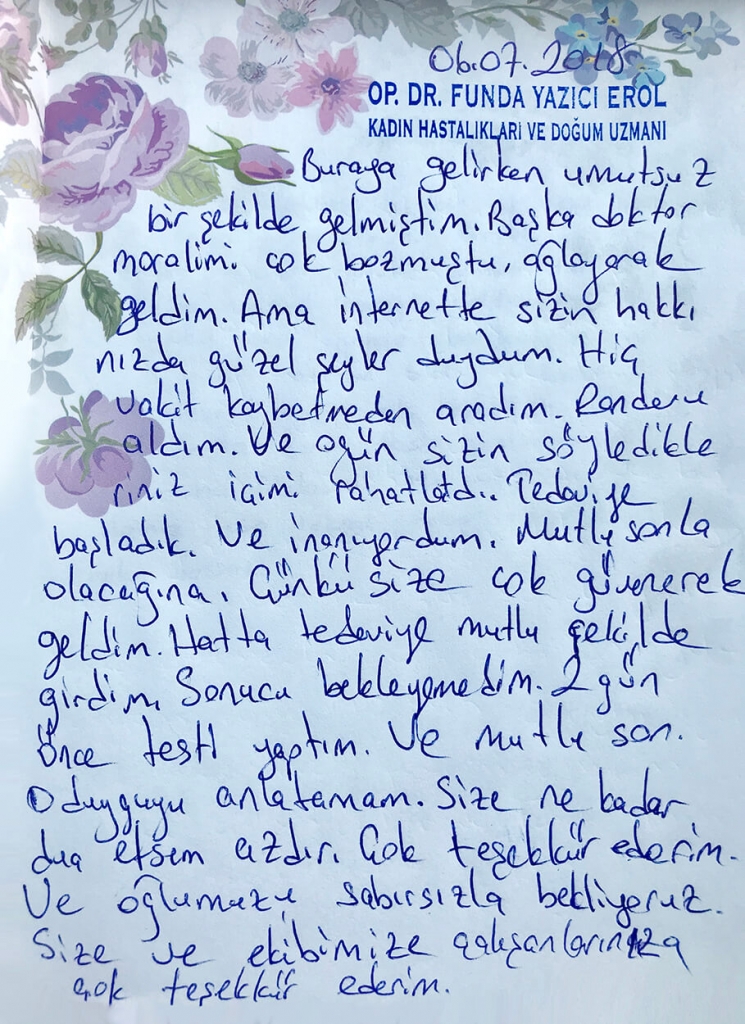 06.07.2018
OP. DR. FUNDA YAZICI EROL
KADIN HASTALIKLARI VE DOĞUM UZMANI
Buraya gelirken umutsuz
bir şekilde gelmiştim. Başka doktor
moralimi çok bozmuştu, ağlayarak
geldim. Ama internette sizin hakkı
nızda güzel şeyler duydum. Hiç
vakit kaybetmeden aradım. Randevu
aldım. Ve ogün sizin söyledikle
riniz içimi rahatlatdı. Tedaviye
başladık. Ve inanıyordum. Mutlu sonla
olacağına. Çünkü size çok güvenerek
geldim. Hatta tedaviye mutlu şekilde
girdim. Sonucu bekleyemedim. 2 gün
Önce testi yaptım. Ve mutlu son.
O duyguyu anlatamam. Size ne kadar
dua etsem azdır. Çok teşekkür ederim.
Ve oğlumuzu sabırsızla bekliyoruz.
Size ve ekibimize çalışanlarınıza
çok teşekkür ederim.